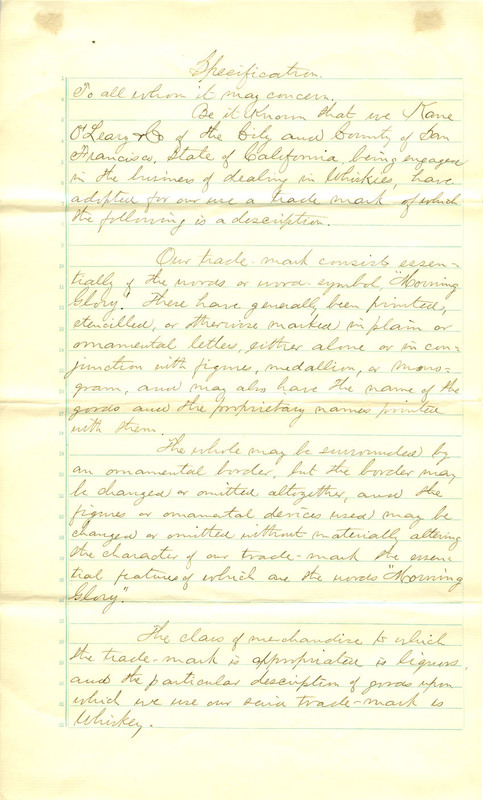 Specification.
To all whom it may concern,
Be it Known that we Kane
O'Leary & Co of the City and County of San
Francisco, State of California, being engaged
in the business of dealing in Whiskies, have
adopted for our use a trade mark of which
the following is a description.
Our trade-mark consists essen-
tially of the words or word symbol, "Morning
Glory". These have generally been printed,
stencilled, or otherwise marked in plain or
ornamental letters, either alone or in con-
junction with figures, medallion, or mono-
gram, and may also have the name of the
goods and the proprietary names printed
with them.
The whole may be surrounded by
an ornamental border, but the border may
be changed or omitted altogether, and the
figures or ornamental devices used may be
changed or omitted without materially altering
the character of our trade-mark the essen-
tial features of which are the words "Morning
Glory".
The class of merchandize to which
the trade-mark is appropriated is liquors,
and the particular description of goods upon
which we use our said trade-mark is
Whiskey.